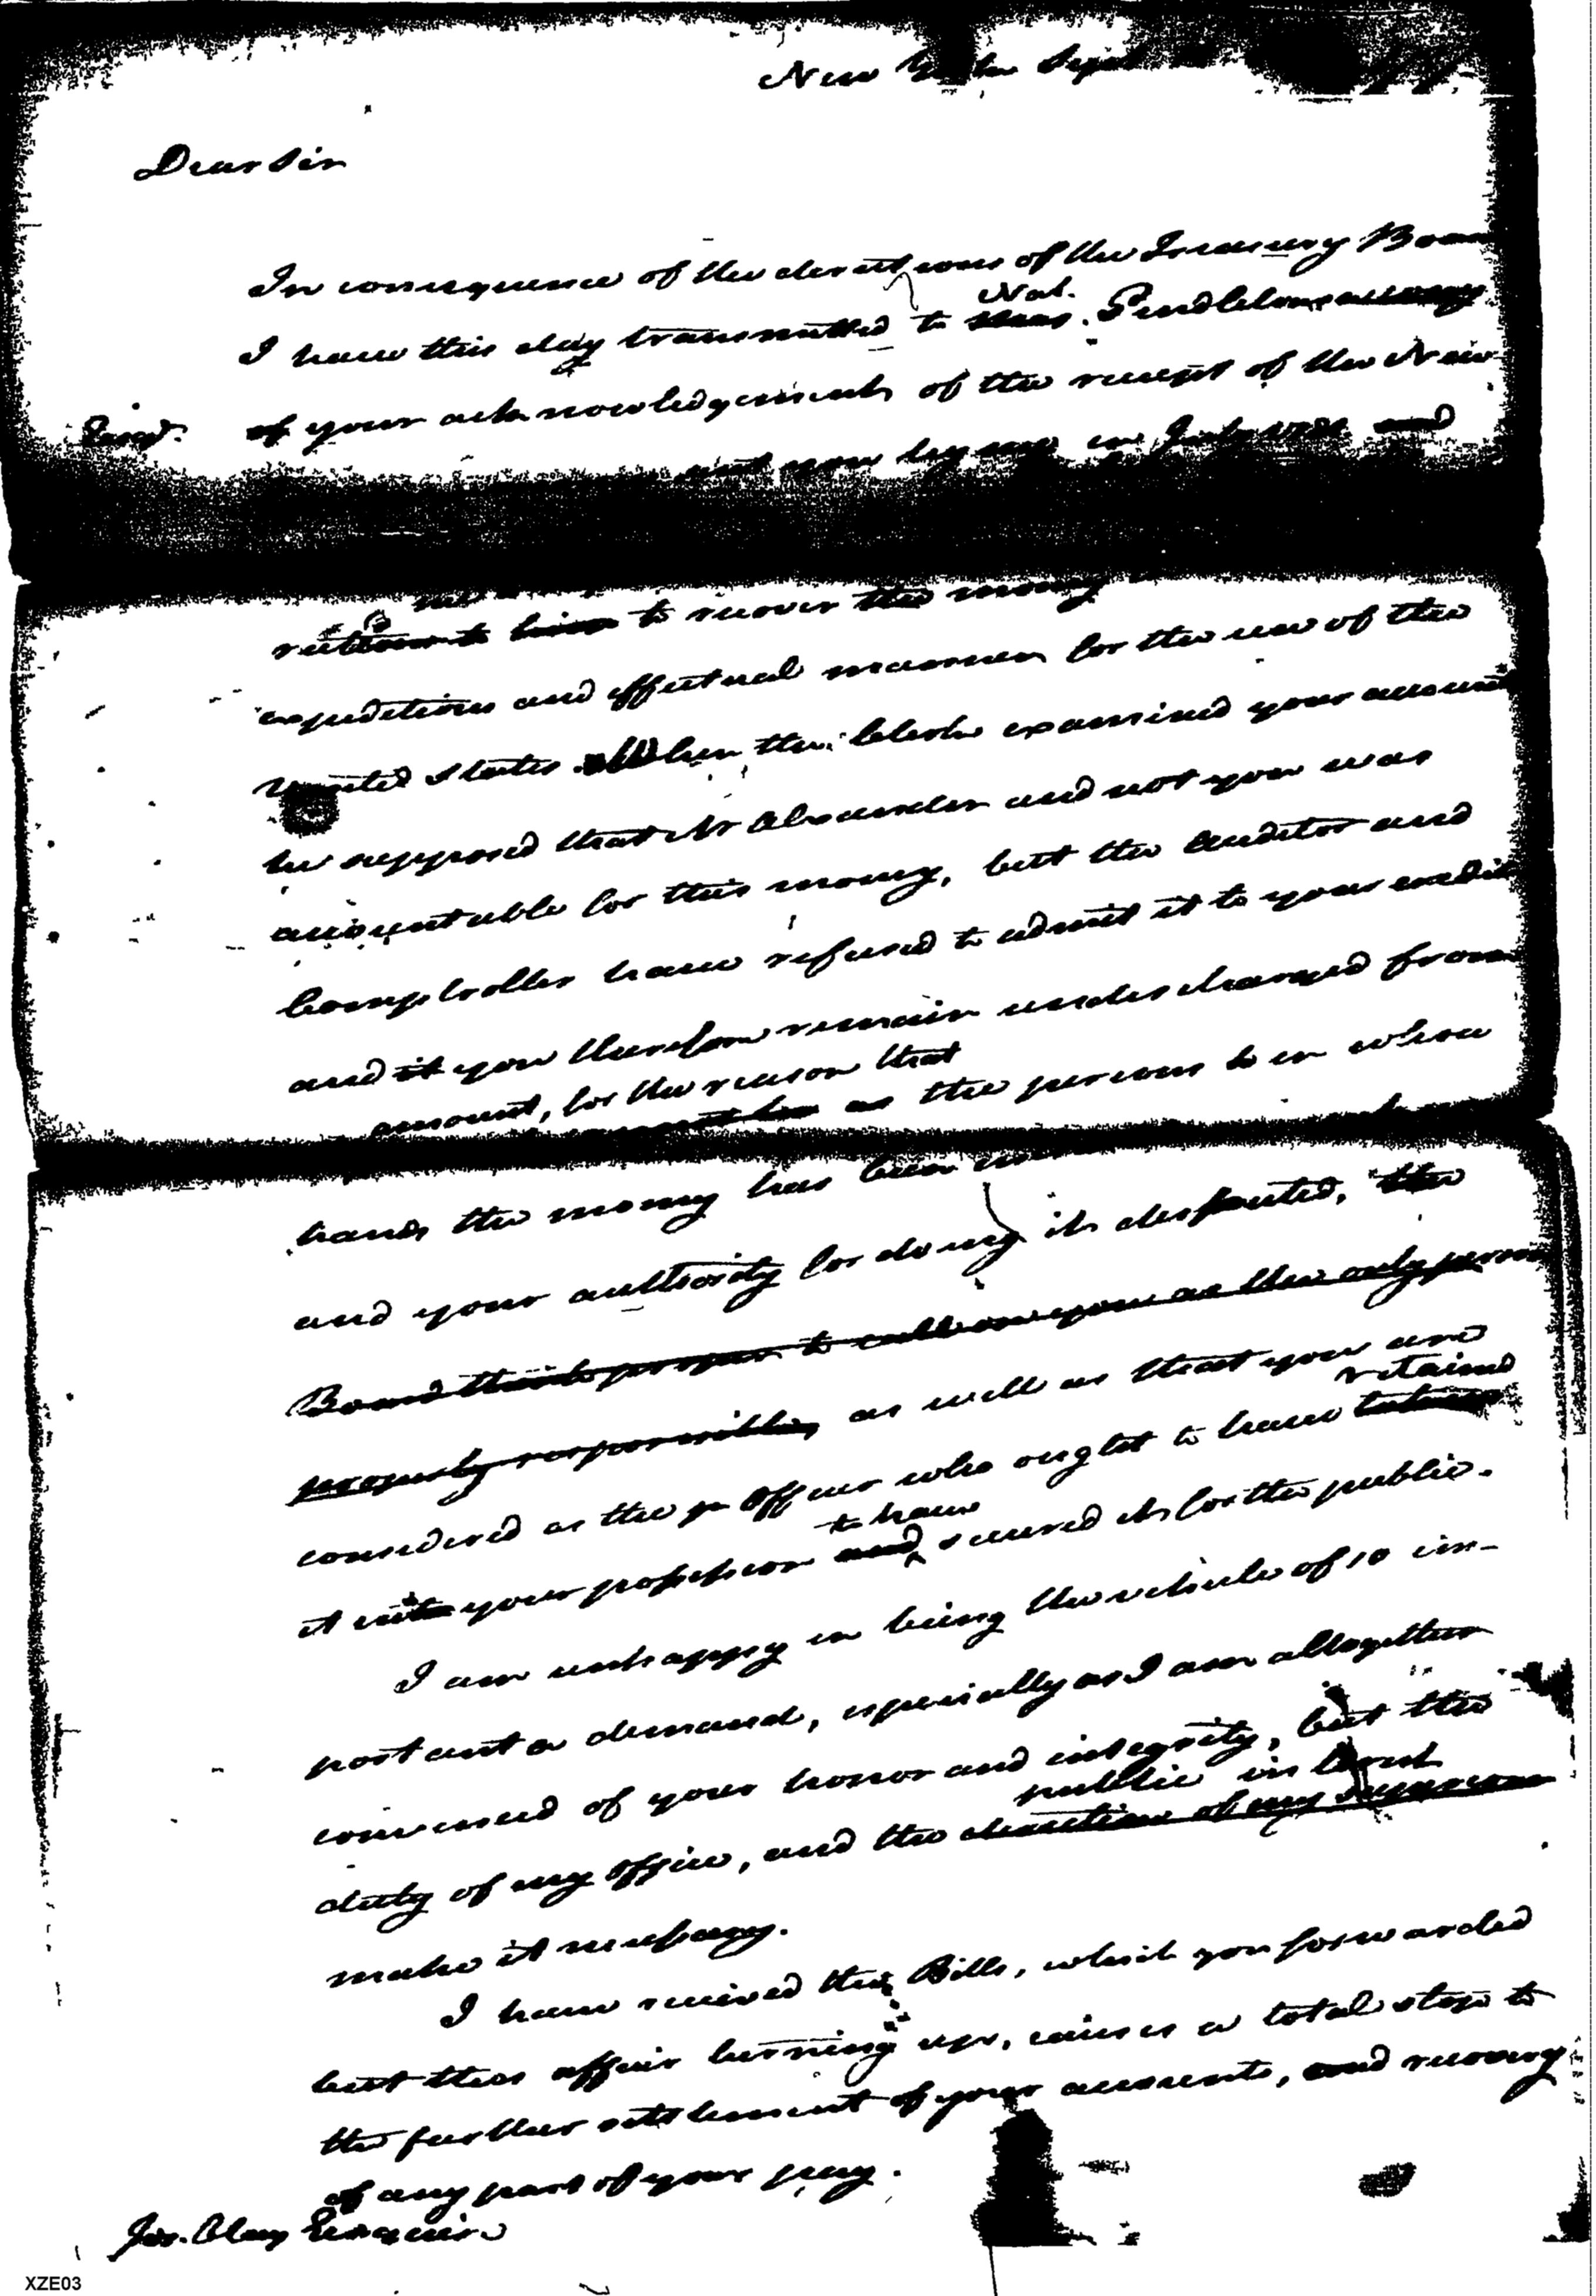 New York Sept
Dear Sir
In consequence of the directions of the Treasury Board
I have this day transmitted to Nat. Pendleton
Esqr. of your acknowledgement of the receipt of the New
sent you by me in July and
to recover the money
expeditious and effectual manner for the use of the
United States. When the Clerk examined your account
he supposed that Mr Alexander and not you was
accountable for this money, but the Auditor and
Comptroller have refused to admit it to your credit
and it you therefore remain undischarged from
amount, for the reason that
as the persons to in whose
hands the money has been
and your authority for doing it disputed, the
Board think proper to call on you as the only person
properly responsible, as well as that you are
retained
considered as the p officer who ought to have
to have
it into your possession and secured it for the public.
I am unhappy in being the vehicle of so im-
portant a demand, especially as I am altogether
convinced of your honor and integrity, but the
public interest
duty of my office, and the direction of my superiors
make it necessary.
I have received the Bills, which you forwarded
but this affair turning up, causes a total stop to
the further settlement of your accounts, and recovery
of any part of your pay.
Jos. Clay Esquire
XZE03